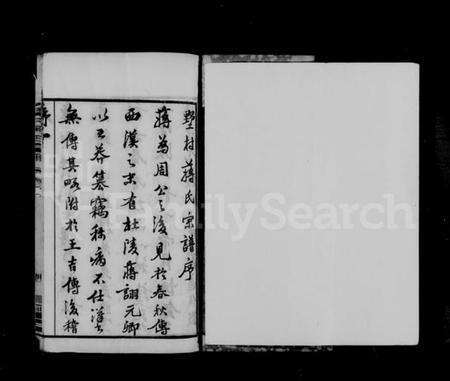 墅村蔣氏宗譜序
蔣為周公之後見於春秋傳
西漢之末有杜陵蔣詡元卿
以王莽篡竊移病不仕漢書
無傳其略附於王吉傳後稽
序
FamilySearch